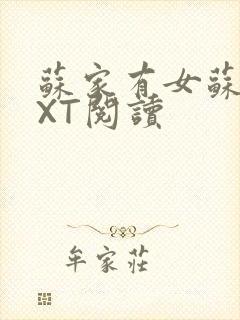 蘇家有女蘇
XT閱讀
牟家莊